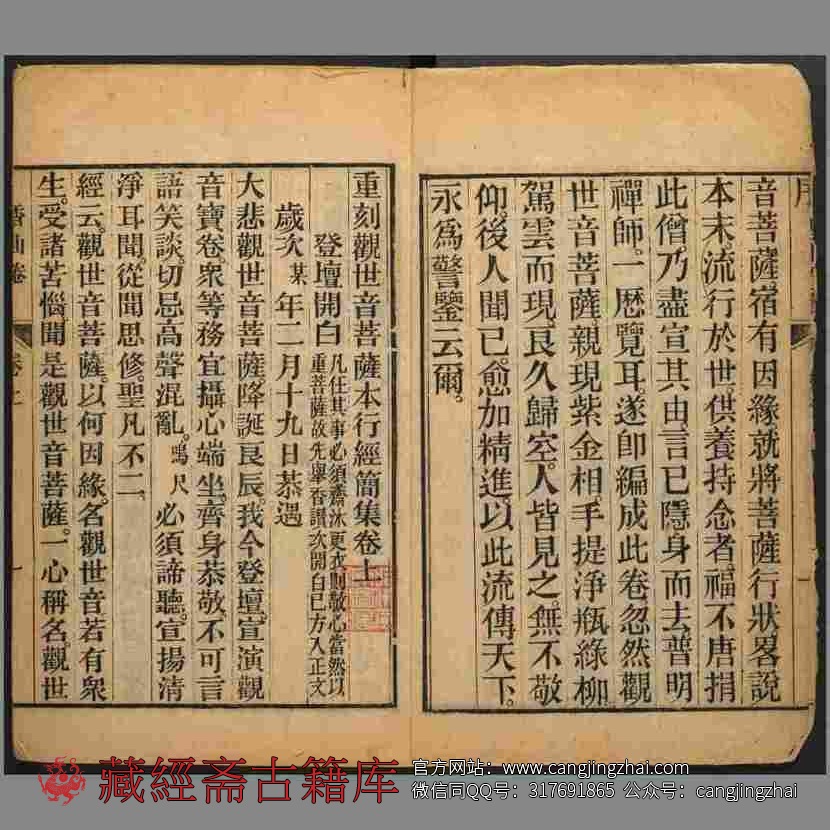 序
音菩薩宿有因緣就將菩薩行狀畧說
本末流行於世供養持念者福不唐捐
此僧乃盡宣其由言已隱身而去普明
禪師一歷覽耳遂卽編成此卷忽然觀
世音菩薩親現紫金相手提淨瓶綠柳
駕雲而現良久歸空人皆見之無不敬
仰後人聞已愈加精進以此流傳天下
永爲警鑒云爾
重刻觀世音菩薩本行經簡集卷上
登壇開白 凡任其事必須齋沐更衣則敬心當然以
重菩薩故先舉香讚次開白已方入正文
歲次某年二月十九日恭遇
大悲觀世音菩薩降誕良辰我今登壇宣演觀
音寶卷衆等務宜攝心端坐齊身恭敬不可言
語笑談切忌高聲混亂鳴尺必須諦聽宣揚清
淨耳聞從聞思修聖凡不二
經云觀世音菩薩以何因緣名觀世音若有衆
生受諸苦惱聞是觀世音菩薩一心稱名觀世
香山卷 卷上 一
藏經斋古籍库
官方网站：www.cangjingzhai.com
微信同QQ号：317691865 公众号：cangjingzhai